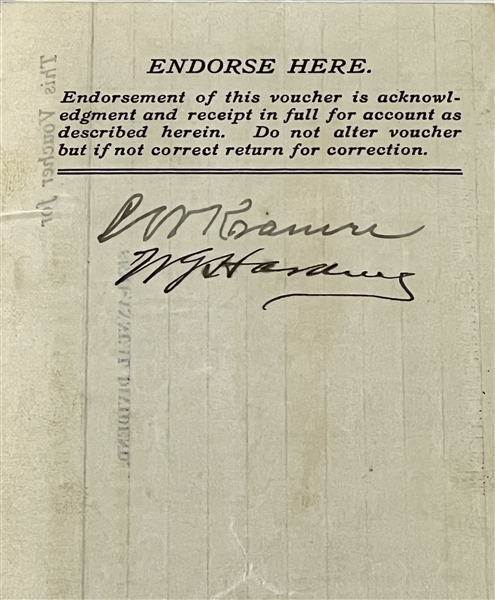 ENDORSE HERE.
Endorsement of this voucher is acknowl-
edgment and receipt in full for account as
described herein. Do not alter voucher
but if not correct return for correction.
WG Harding
This Voucher for
-ANNUAL DIVIDEND.